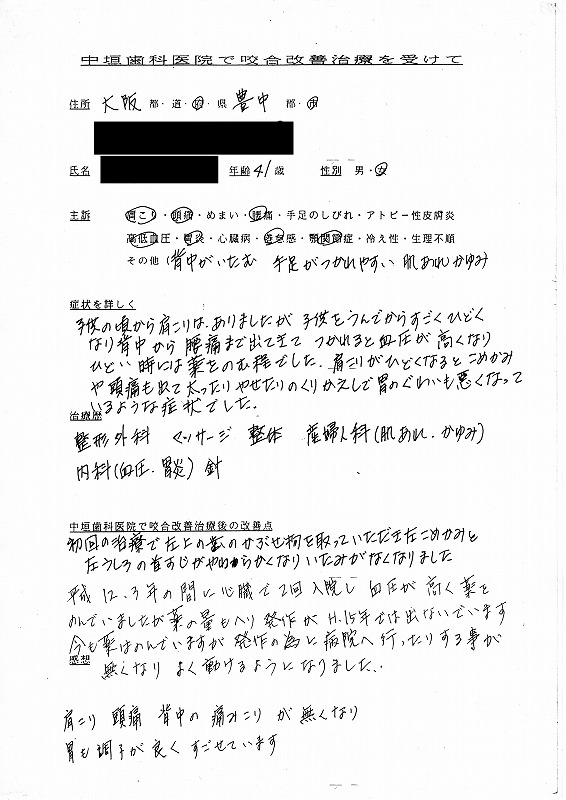 中垣歯科医院で咬合改善治療を受けて
住所 大阪 都・道・府・県 豊中 郡・市
氏名 年齢 41歳 性別 男・女
主訴 肩こり・頭痛・めまい・腰痛・手足のしびれ・アトピー性皮膚炎
高低血圧・胃炎・心臓病・倦怠感・顎関節症・冷え性・生理不順
その他（背中がいたむ 手足がつかれやすい 肌あれかゆみ
症状を詳しく
子供の頃から肩こりは、ありましたが子供をうんでからすごくひどく
なり背中から腰痛まで出てきて つかれると血圧が高くなり
ひどい時には薬をのむ程でした。肩こりがひどくなるとこめかみ
や頭痛も出て太ったりやせたりのくりかえしで胃のぐわいも悪くなって
いるような症状でした。
治療歴
整形外科 マッサージ 整体 産婦人科(肌あれ、かゆみ)
内科(血圧、胃炎) 針
中垣歯科医院で咬合改善治療後の改善点
初回の治療で左上の歯のかぶせ物を取っていただき左こめかみと
左うしろの首すじがやわらかくなりいたみがなくなりました
平成12、3年の間に心臓で2回入院し 血圧が高く薬を
のんでいましたが薬の量もへり発作がH.15年では出ないでいます
今も薬はのんでいますが発作の為に病院へ行ったりする事が
感想
無くなり よく動けるようになりました..
肩こり 頭痛 背中の痛みこりが無くなり
胃も調子が良く すごせています